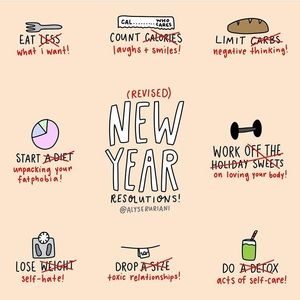 EAT LESS
what i want!
CAL...... WHO CARES
COUNT CALORIES
laughs + smiles!
LIMIT CARBS
negative thinking!
(REVISED)
NEW
YEAR
RESOLUTIONS!
@ALYSERURIANI
START A DIET
unpacking your
fatphobia!
WORK OFF THE
HOLIDAY SWEETS
on loving your body!
LOSE WEIGHT
self-hate!
DROP A SIZE
toxic relationships!
DO A DETOX
acts of self-care!